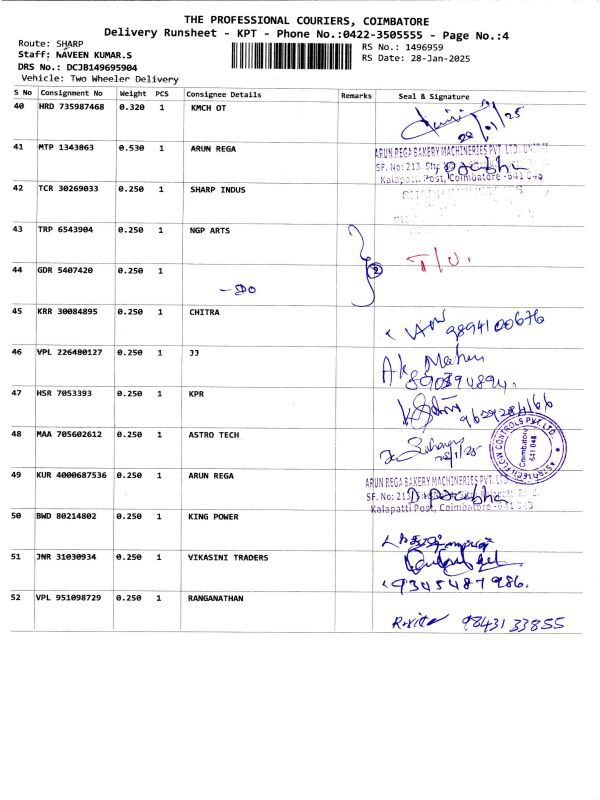 THE PROFESSIONAL COURIERS, COIMBATORE
Delivery Runsheet - KPT - Phone No.:0422-3505555 - Page No.:4
Route: SHARP
RS No.: 1496959
Staff: NAVEEN KUMAR.S
RS Date: 28-Jan-2025
DRS No.: DCJB149695904
Vehicle: Two Wheeler Delivery
S No Consignment No Weight PCS Consignee Details Remarks Seal & Signature
40 HRD 735987468 0.320 1 KMCH OT
41 MTP 1343863 0.530 1 ARUN REGA
ARUN REGA BAKERY MACHINERIES PVT. LTD.
SF. No: 213
Kalapatti Post, Coimbatore - 641
42 TCR 30269033 0.250 1 SHARP INDUS
43 TRP 6543904 0.250 1 NGP ARTS
2 T/U.
44 GDR 5407420 0.250 1
- SDO
45 KRR 30084895 0.250 1 CHITRA
9894100676
46 VPL 226480127 0.250 1 JJ
47 HSR 7053393 0.250 1 KPR
48 MAA 705602612 0.250 1 ASTRO TECH
28/1/25
ASTROTECH FLOW CONTROLS PVT. LTD.
Coimbatore
641 048
49 KUR 4000687536 0.250 1 ARUN REGA
ARUN REGA BAKERY MACHINERIES PVT. LTD.
SF. No: 213
Kalapatti Post, Coimbatore - 641
50 BWD 80214802 0.250 1 KING POWER
51 JNR 31030934 0.250 1 VIKASINI TRADERS
9345487986.
52 VPL 951098729 0.250 1 RANGANATHAN
9843133855